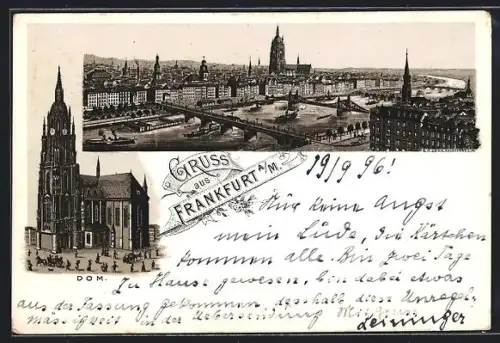 GRUSS
aus
FRANKFURT A/M.
DOM.
19/9 96!
Nur keine Angst
mein Lüde, die Kärtchen
kommen alle. Bin zwei Tage
zu Hause gewesen, bin dabei etwas
aus der Fassung gekommen, desshalb diese Unregel-
mässigkeit in der Uebersendung
Leininger